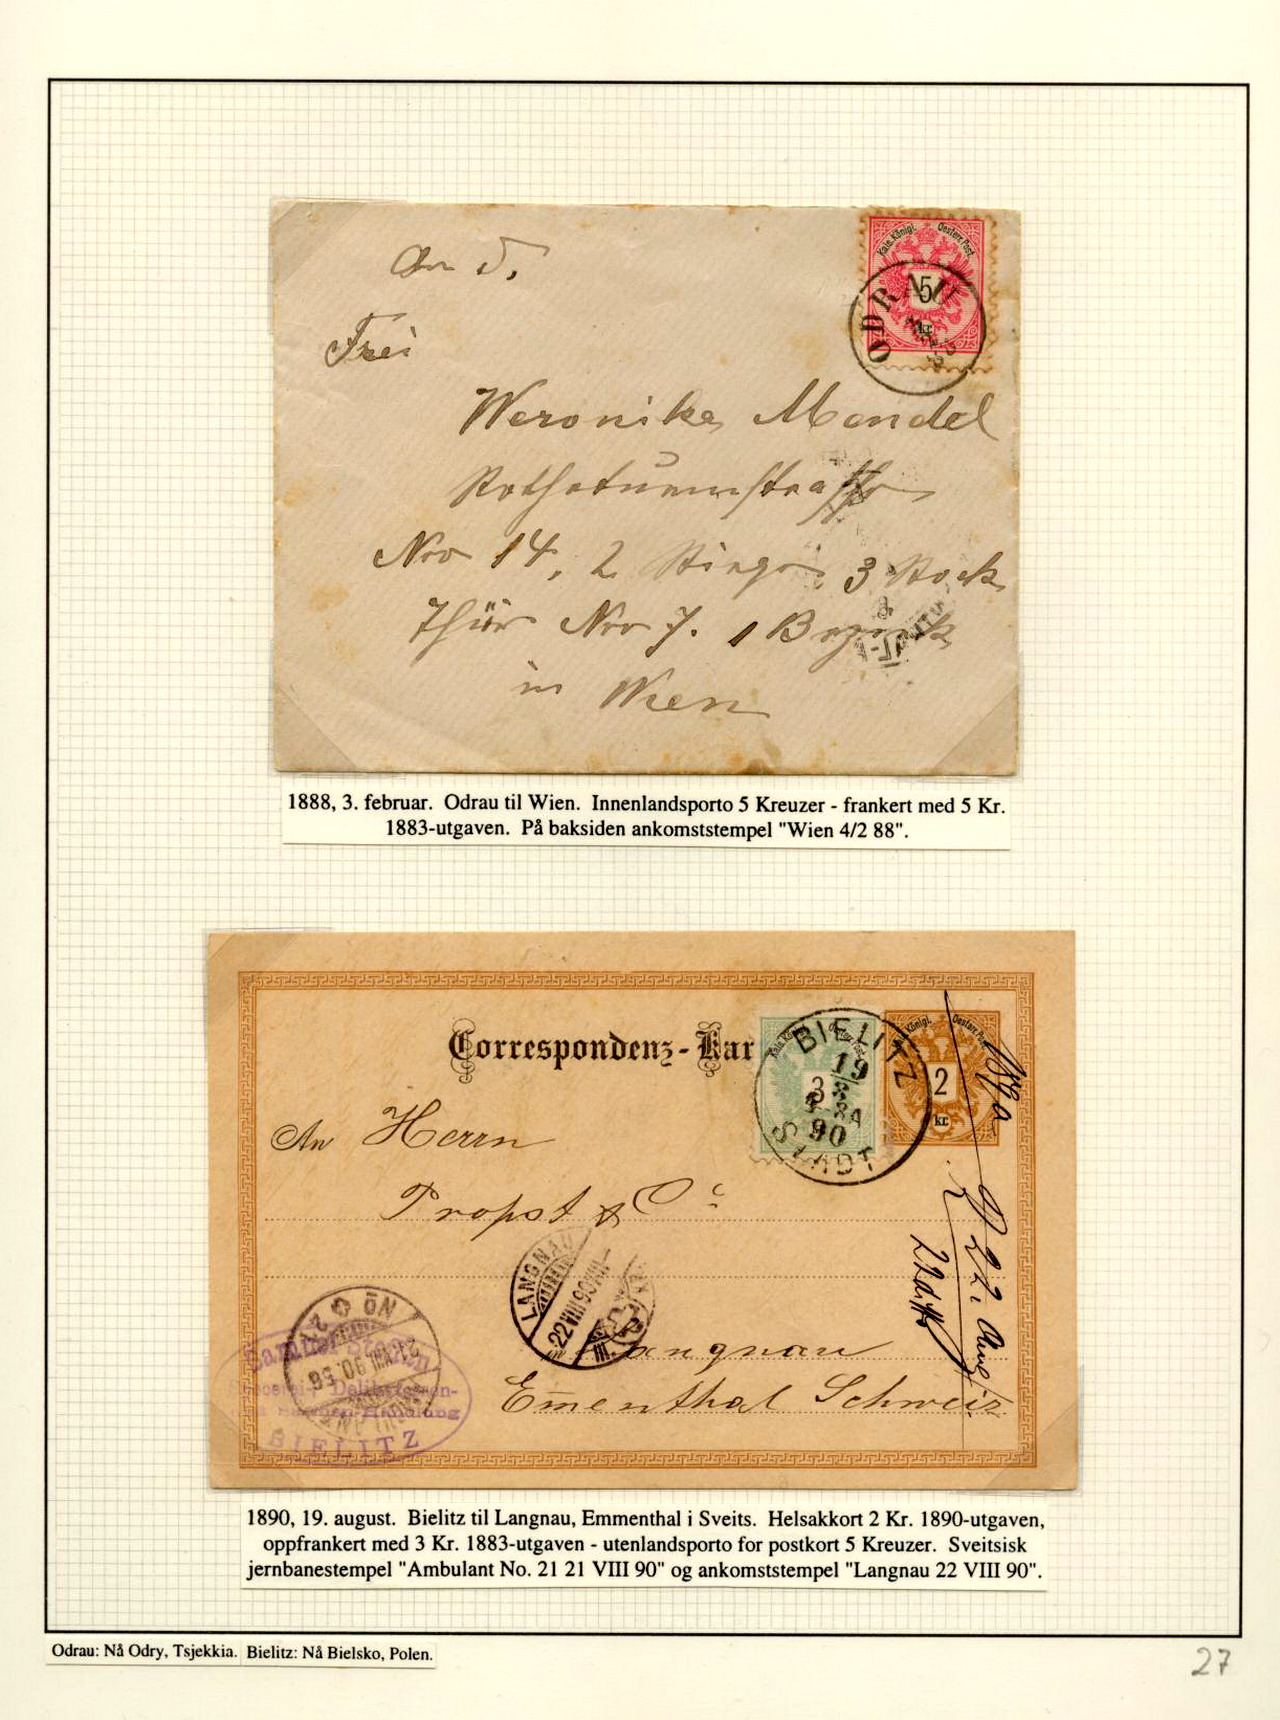 Kais. Königl. Oesterr. Post.
5
kr.
ODRAU
An d.
Frei
Weronika Mandel
Rotheturmstrasse
Nro 14, 2 Stiege, 3 Stock
Thür Nro 7. 1 Bezirk
in Wien
1888, 3. februar. Odrau til Wien. Innenlandsporto 5 Kreuzer - frankert med 5 Kr.
1883-utgaven. På baksiden ankomststempel "Wien 4/2 88".
Correspondenz-Kar
BIELITZ
19
8
90
STADT
3
Königl. Oesterr. Post.
2
kr.
An Herrn
Propst & Co
LANGNAU
22 VIII 90
Langnau
Ementhal Schweiz
22. Aug
No 21
21 VIII 90
Delikatessen-
Handlung
BIELITZ
1890, 19. august. Bielitz til Langnau, Emmenthal i Sveits. Helsakkort 2 Kr. 1890-utgaven,
oppfrankert med 3 Kr. 1883-utgaven - utenlandsporto for postkort 5 Kreuzer. Sveitsisk
jernbanestempel "Ambulant No. 21 21 VIII 90" og ankomststempel "Langnau 22 VIII 90".
Odrau: Nå Odry, Tsjekkia. Bielitz: Nå Bielsko, Polen.
27